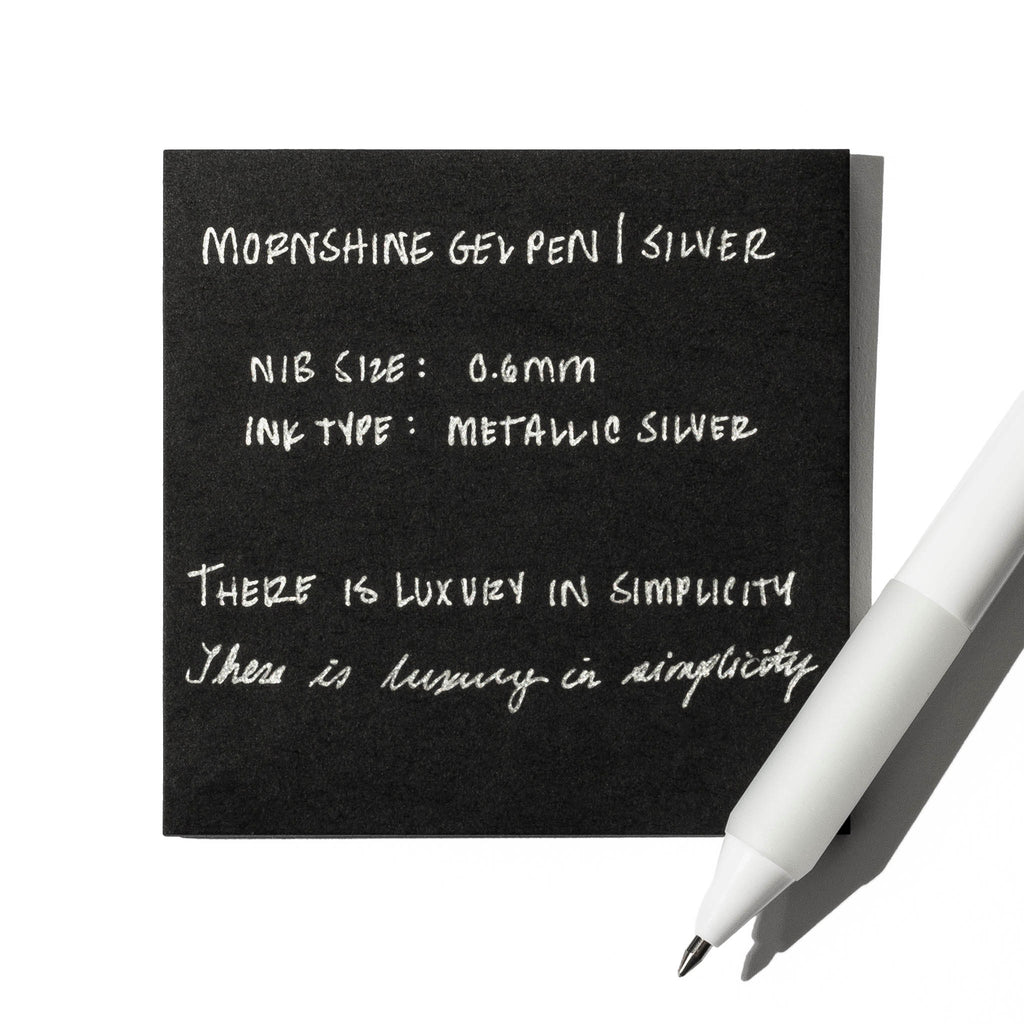 MORNSHINE GEL PEN | SILVER
NIB SIZE: 0.6mm
INK TYPE: METALLIC SILVER
THERE IS LUXURY IN SIMPLICITY
There is luxury in simplicity